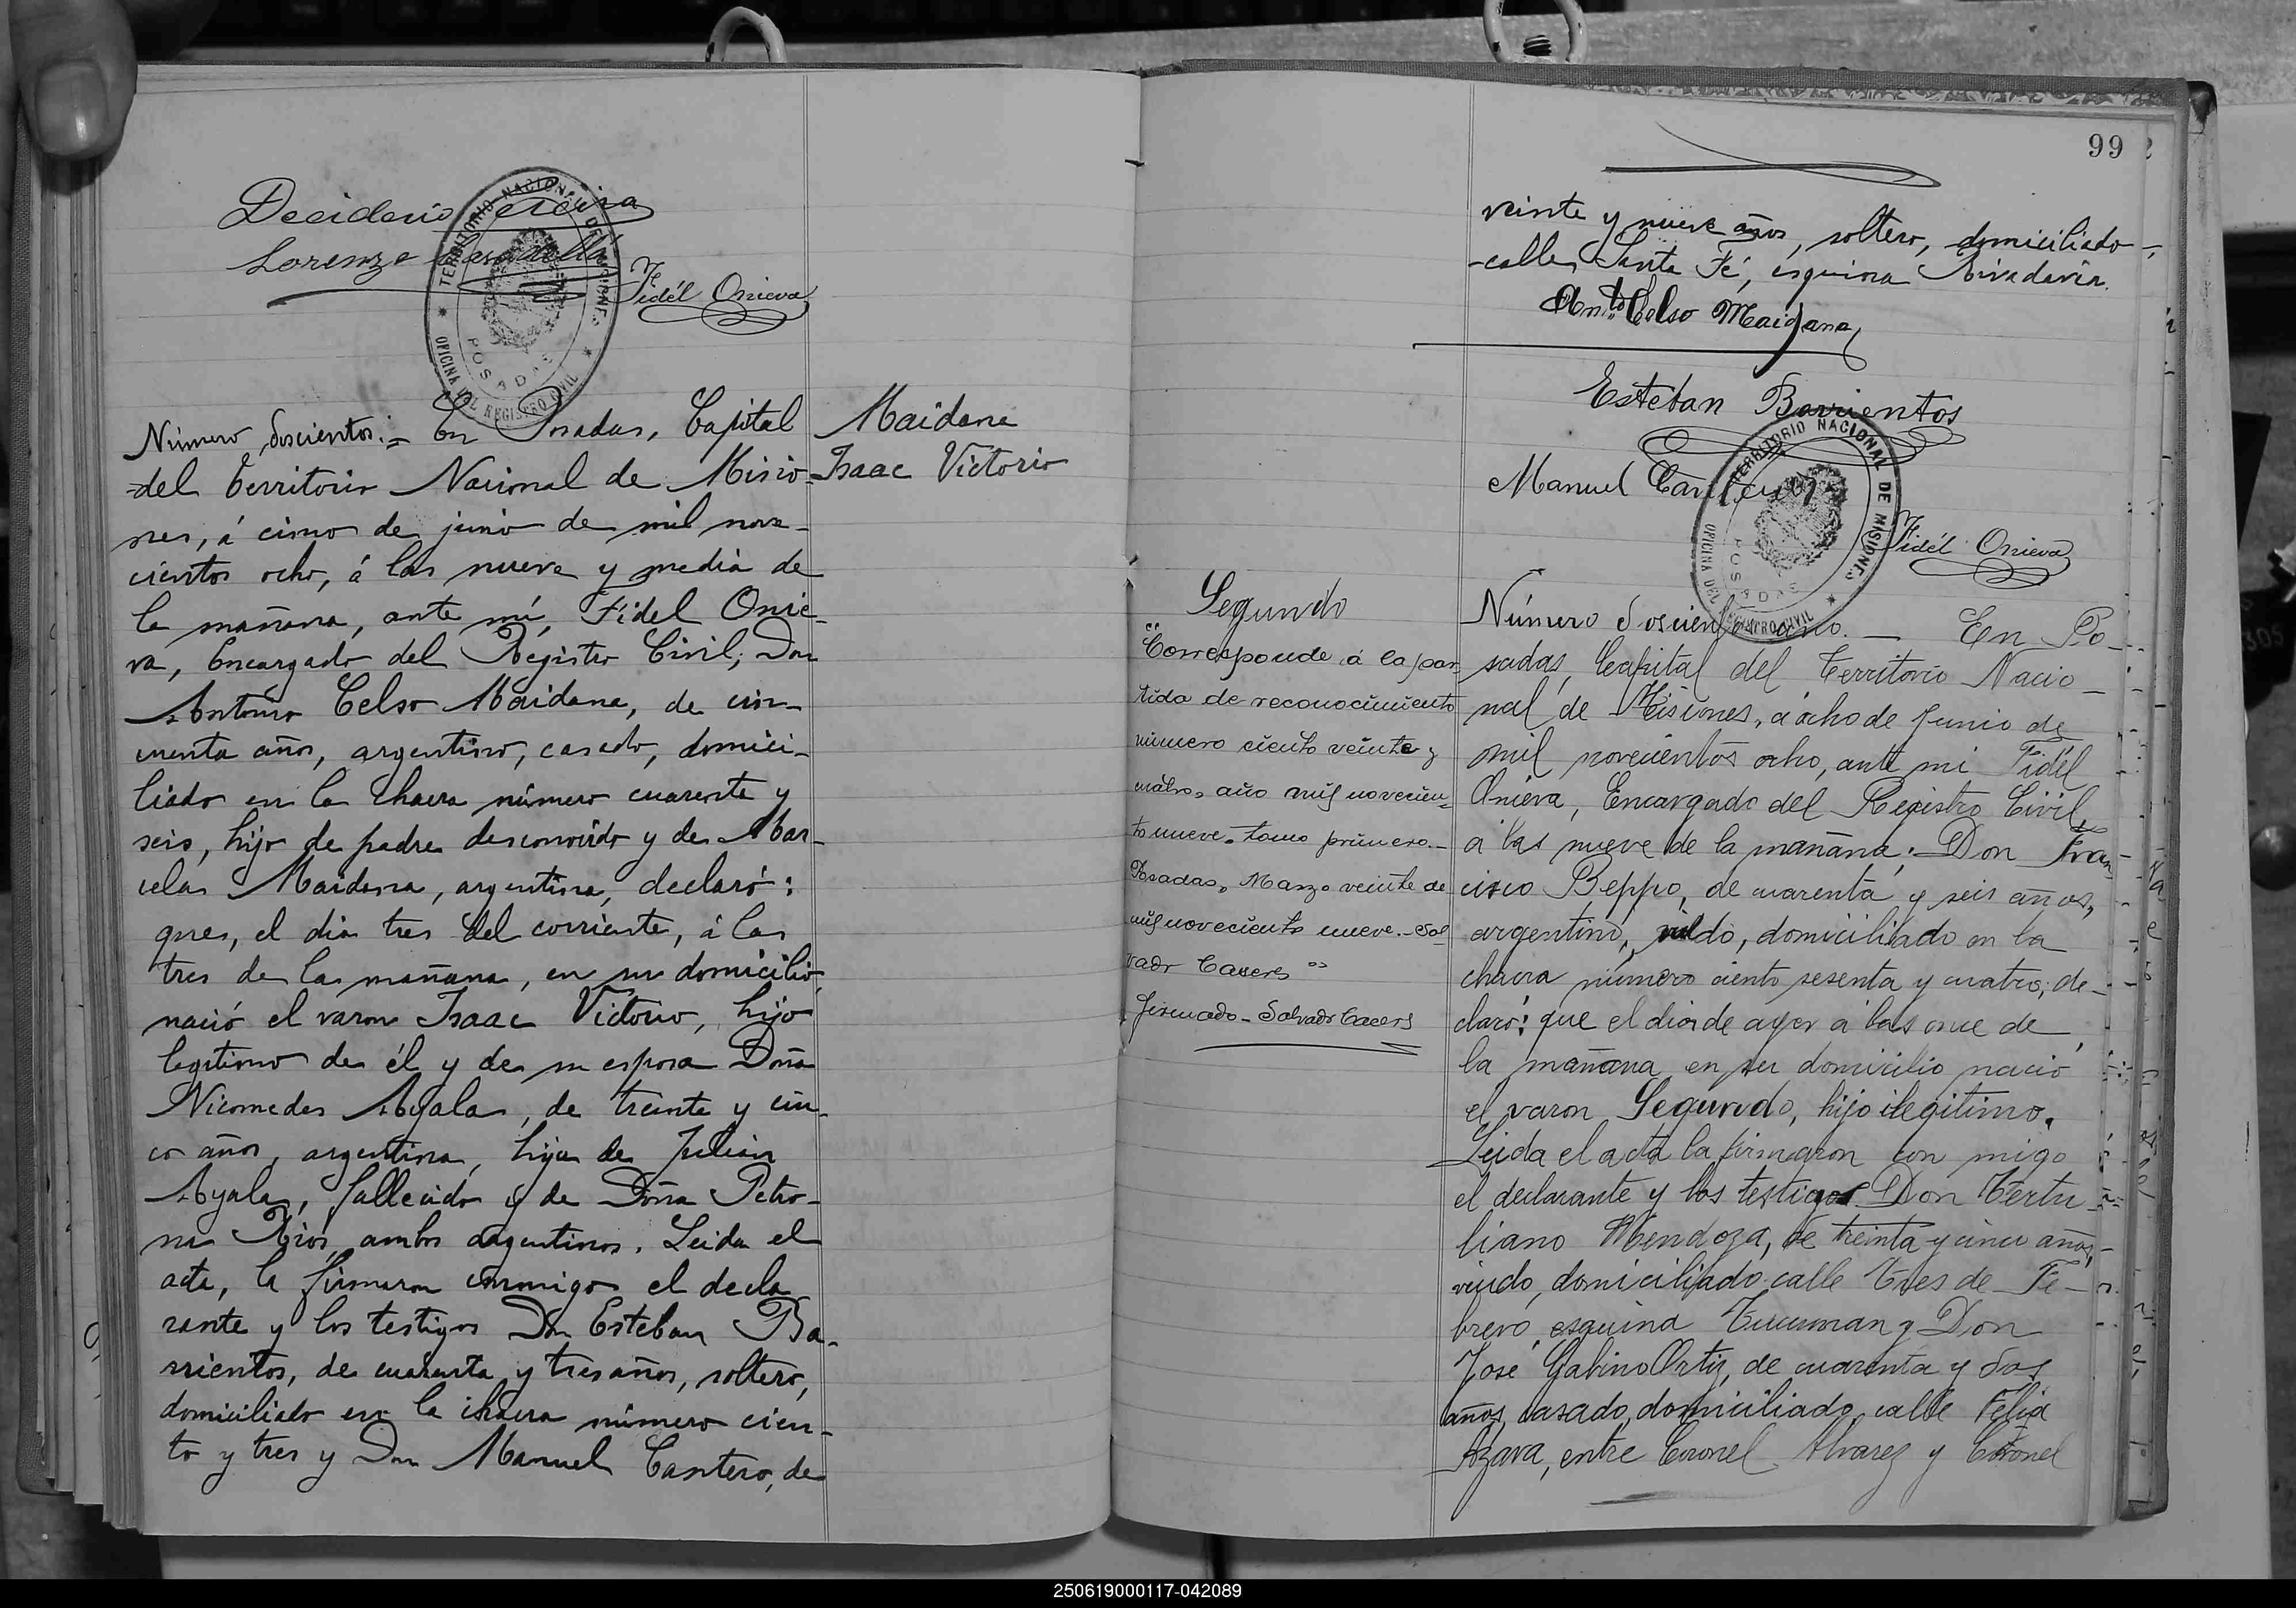 Deciderio
Lorenzo
Fidél Onieva
TERRITORIO NACIONAL DE MISIONES
OFICINA DEL REGISTRO CIVIL
POSADAS
Maidana
Isaac Victorio
Número doscientos.= En Posadas, Capital
del Territorio Nacional de Misio-
nes, á cinco de junio de mil nove-
cientos ocho, á las nueve y media de
la mañana, ante mí, Fidel Onie-
va, Encargado del Registro Civil; Don
Antonio Celso Maidana, de cin-
cuenta años, argentino, casado, domici-
liado en la chacra número cuarenta y
seis, hijo de padre desconocido y de Mar-
cela Maidana, argentina, declaró:
que, el dia tres del corriente, á las
tres de la mañana, en su domicilio,
nació el varon Isaac Victorio, hijo
legitimo de él y de su esposa Doña
Nicomedes Ayala, de treinta y cin-
co años, argentina, hija de Julián
Ayala, fallecido y de Doña Petro-
na Rios, ambos argentinos. Leida el
acta, la firmaron conmigo el decla
rante y los testigos Don Esteban Ba-
rrientos, de cuarenta y tres años, soltero,
domiciliado en la chacra número cien-
to y tres y Don Manuel Cantero, de
99
veinte y nueve años, soltero, domiciliado
calle Santa Fé, esquina Rivadavia.
Anto. Celso Maidana
Esteban Barrientos
Manuel Cantero
Fidél Onieva
TERRITORIO NACIONAL DE MISIONES
OFICINA DEL REGISTRO CIVIL
POSADAS
Segundo
"Corresponde á la par
tida de reconocimiento
número ciento veinte y
cuatro, año mil novecien-
to nueve, tomo primero.-
Posadas, Marzo veinte de
mil novecientos nueve.- Sal
vadr Caceres"
firmado - Salvadr Caceres
Número doscientos uno. — En Po-
sadas, Capital del Territorio Nacio-
nal de Misiones, á ocho de Junio de
mil novecientos ocho, ante mi Fidél
Onieva, Encargado del Registro Civil,
á las nueve de la mañana; Don Fran-
cisco Beppo, de cuarenta y seis años,
argentino, viudo, domiciliado en la
chacra número ciento sesenta y cuatro; de-
claró: que el dia de ayer á las once de
la mañana en su domicilio nació
el varon Segundo, hijo ilegitimo.
Leida el acta la firmaron con migo
el declarante y los testigos Don Tertu
liano Mendoza, de treinta y cinco años,
viudo, domiciliado calle Tres de Fe-
brero esquina Tucuman y Don
José Gabino Ortiz, de cuarenta y dos
años, casado, domiciliado calle Felix
Azara, entre Coronel Alvarez y Coronel
250619000117-042089